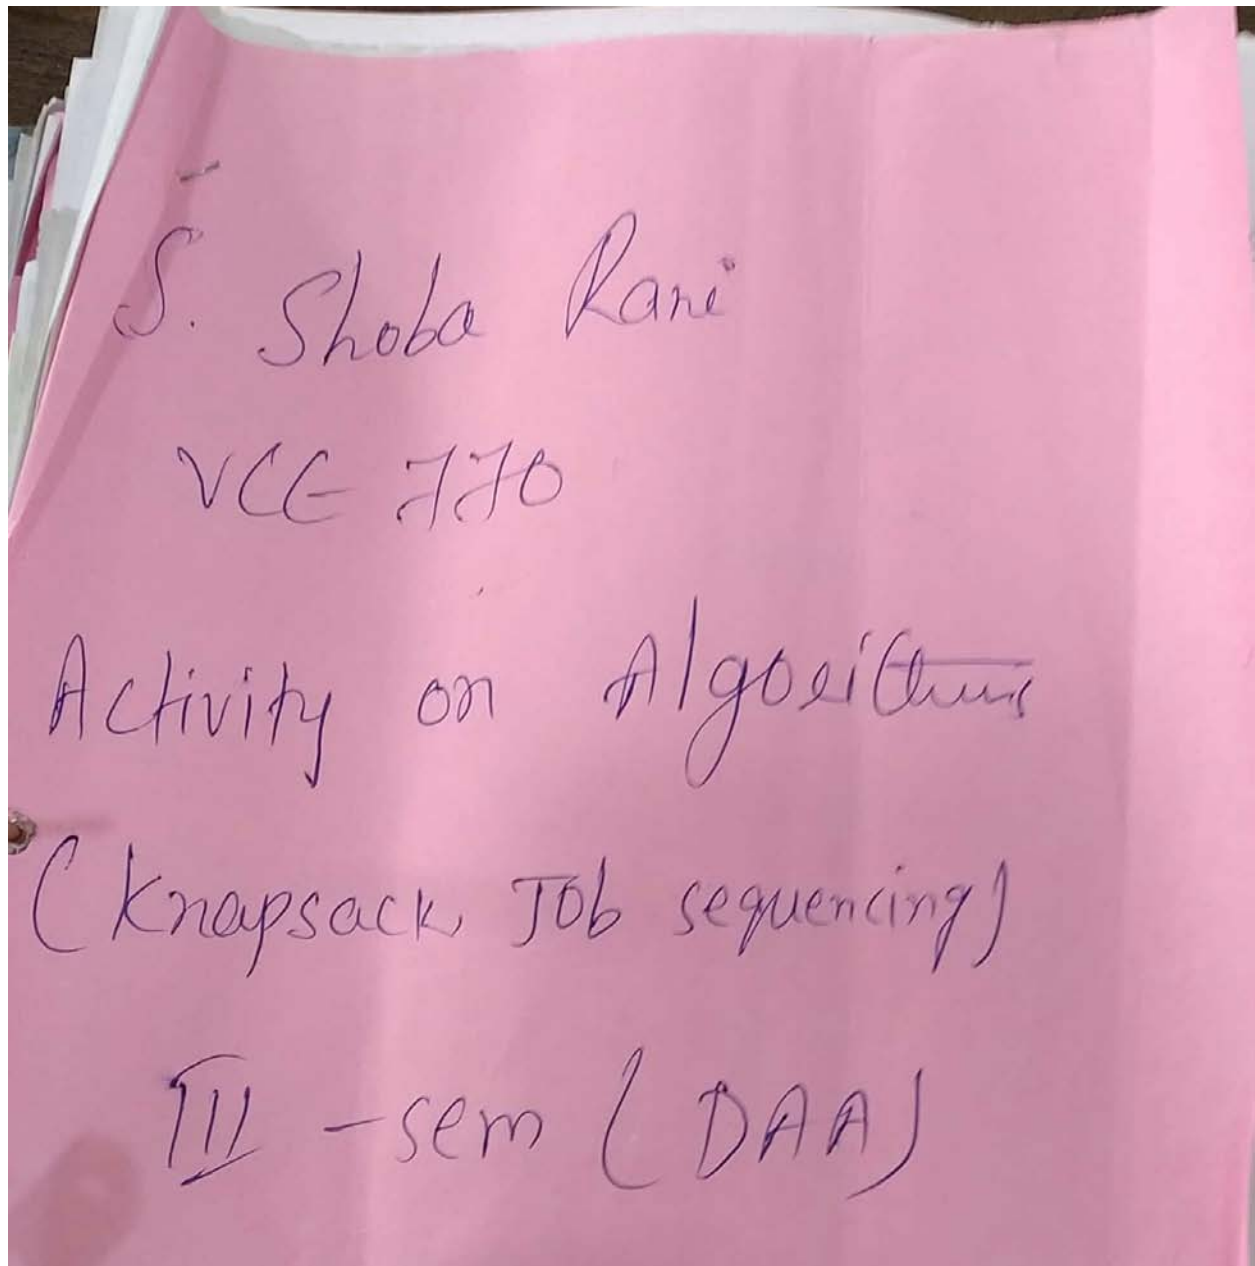 S. Shoba Rani
VCE 770
Activity on Algorithms
(Knapsack, Job sequencing)
III - sem (DAA)